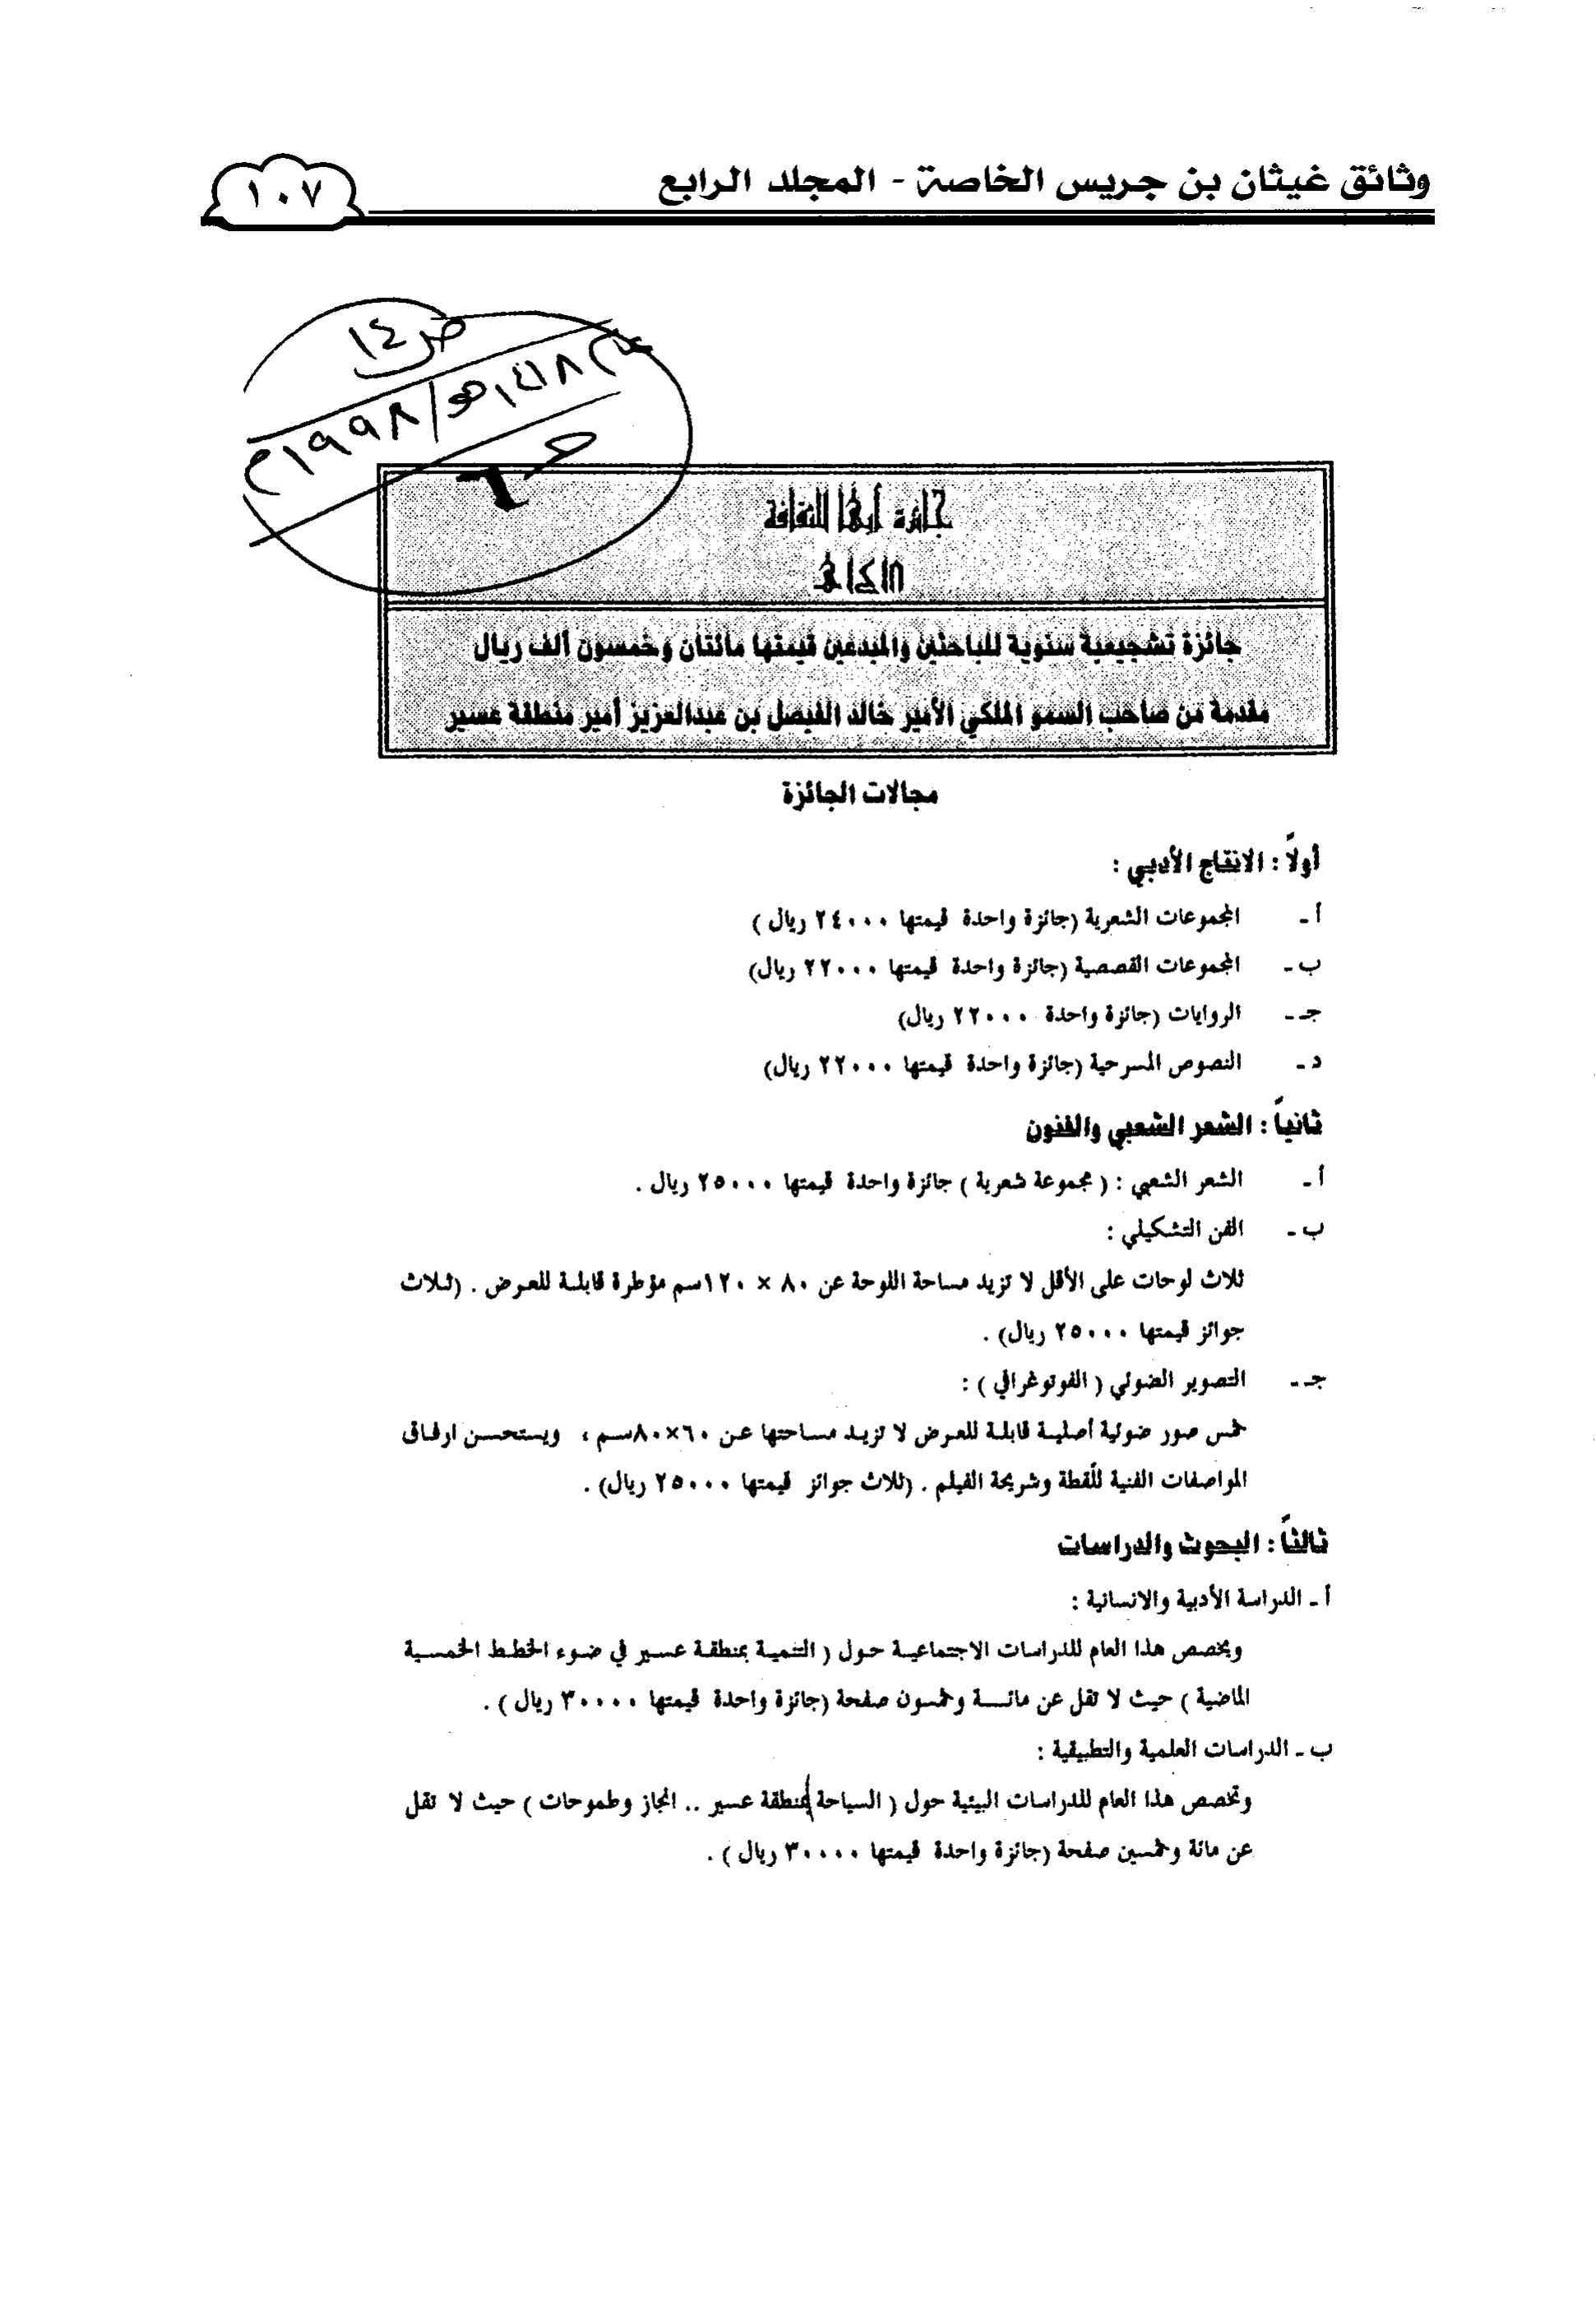 وثائق غيثان بن جريس الخاصة - المجلد الرابع
١٠٧
ص١٤
عام ١٤١٨هـ/١٩٩٨م
جائزة أبها للثقافة
١٤١٨هـ
جائزة تشجيعية سنوية للباحثين والمبدعين قيمتها مائتان وخمسون ألف ريال
مقدمة من صاحب السمو الملكي الأمير خالد الفيصل بن عبدالعزيز أمير منطقة عسير
مجالات الجائزة
أولاً : الانتاج الأدبي :
أ ـ المجموعات الشعرية (جائزة واحدة قيمتها ٢٤٠٠٠ ريال )
ب ـ المجموعات القصصية (جائزة واحدة قيمتها ٢٢٠٠٠ ريال)
جـ ـ الروايات (جائزة واحدة ٢٢٠٠٠ ريال)
د ـ النصوص المسرحية (جائزة واحدة قيمتها ٢٢٠٠٠ ريال)
ثانياً : الشعر الشعبي والفنون
أ ـ الشعر الشعبي : ( مجموعة شعرية ) جائزة واحدة قيمتها ٢٥٠٠٠ ريال .
ب ـ الفن التشكيلي :
ثلاث لوحات على الأقل لا تزيد مساحة اللوحة عن ٨٠ × ١٢٠سم مؤطرة قابلة للعرض . (ثلاث
جوائز قيمتها ٢٥٠٠٠ ريال) .
جـ ـ التصوير الضوئي ( الفوتوغرافي ) :
خمس صور ضوئية أصلية قابلة للعرض لا تزيد مساحتها عن ٦٠×٨٠سم ، ويستحسن ارفاق
المواصفات الفنية للّقطة وشريحة الفيلم . (ثلاث جوائز قيمتها ٢٥٠٠٠ ريال) .
ثالثاً : البحوث والدراسات
أ ـ الدراسة الأدبية والانسانية :
ويخصص هذا العام للدراسات الاجتماعية حول ( التنمية بمنطقة عسير في ضوء الخطط الخمسية
الماضية ) حيث لا تقل عن مائة وخمسون صفحة (جائزة واحدة قيمتها ٣٠٠٠٠ ريال ) .
ب ـ الدراسات العلمية والتطبيقية :
وتخصص هذا العام للدراسات البيئية حول ( السياحة بمنطقة عسير .. انجاز وطموحات ) حيث لا تقل
عن مائة وخمسين صفحة (جائزة واحدة قيمتها ٣٠٠٠٠ ريال ) .